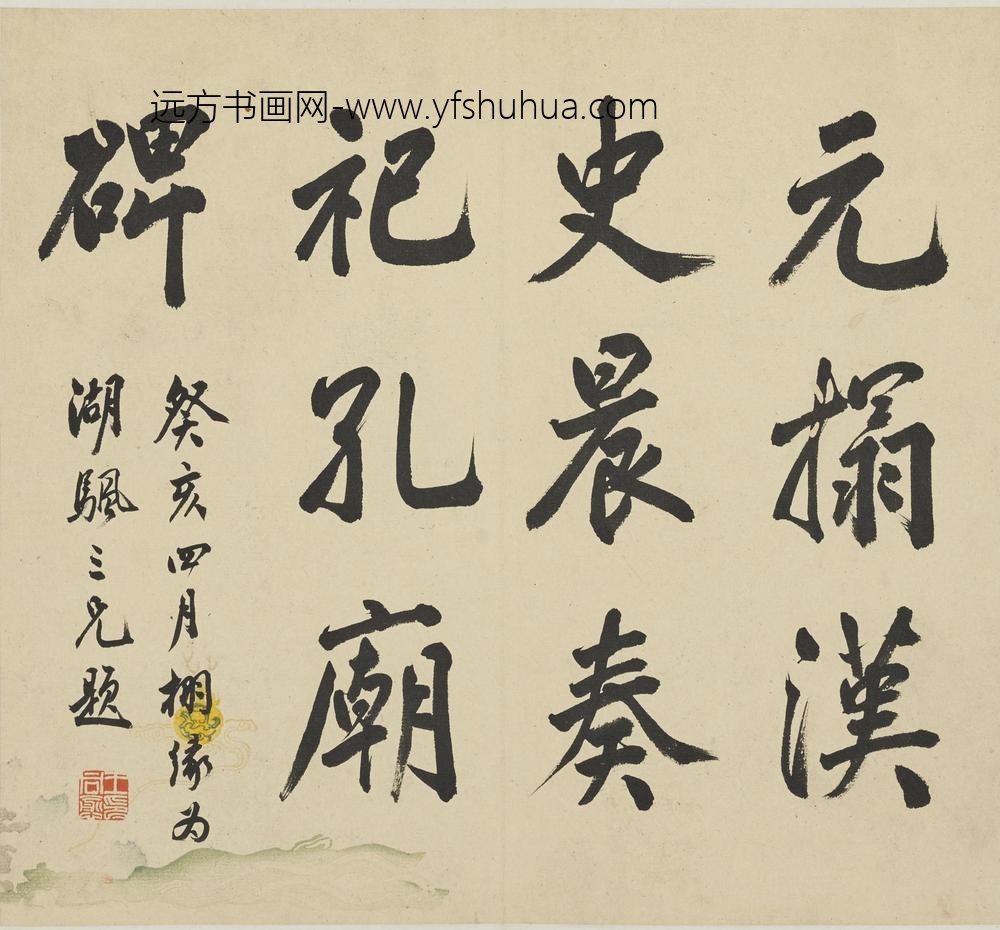 远方书画网-www.yfshuhua.com
元搨漢
史晨奏
祀孔廟
碑
癸亥四月栩缘为
湖颿三兄題